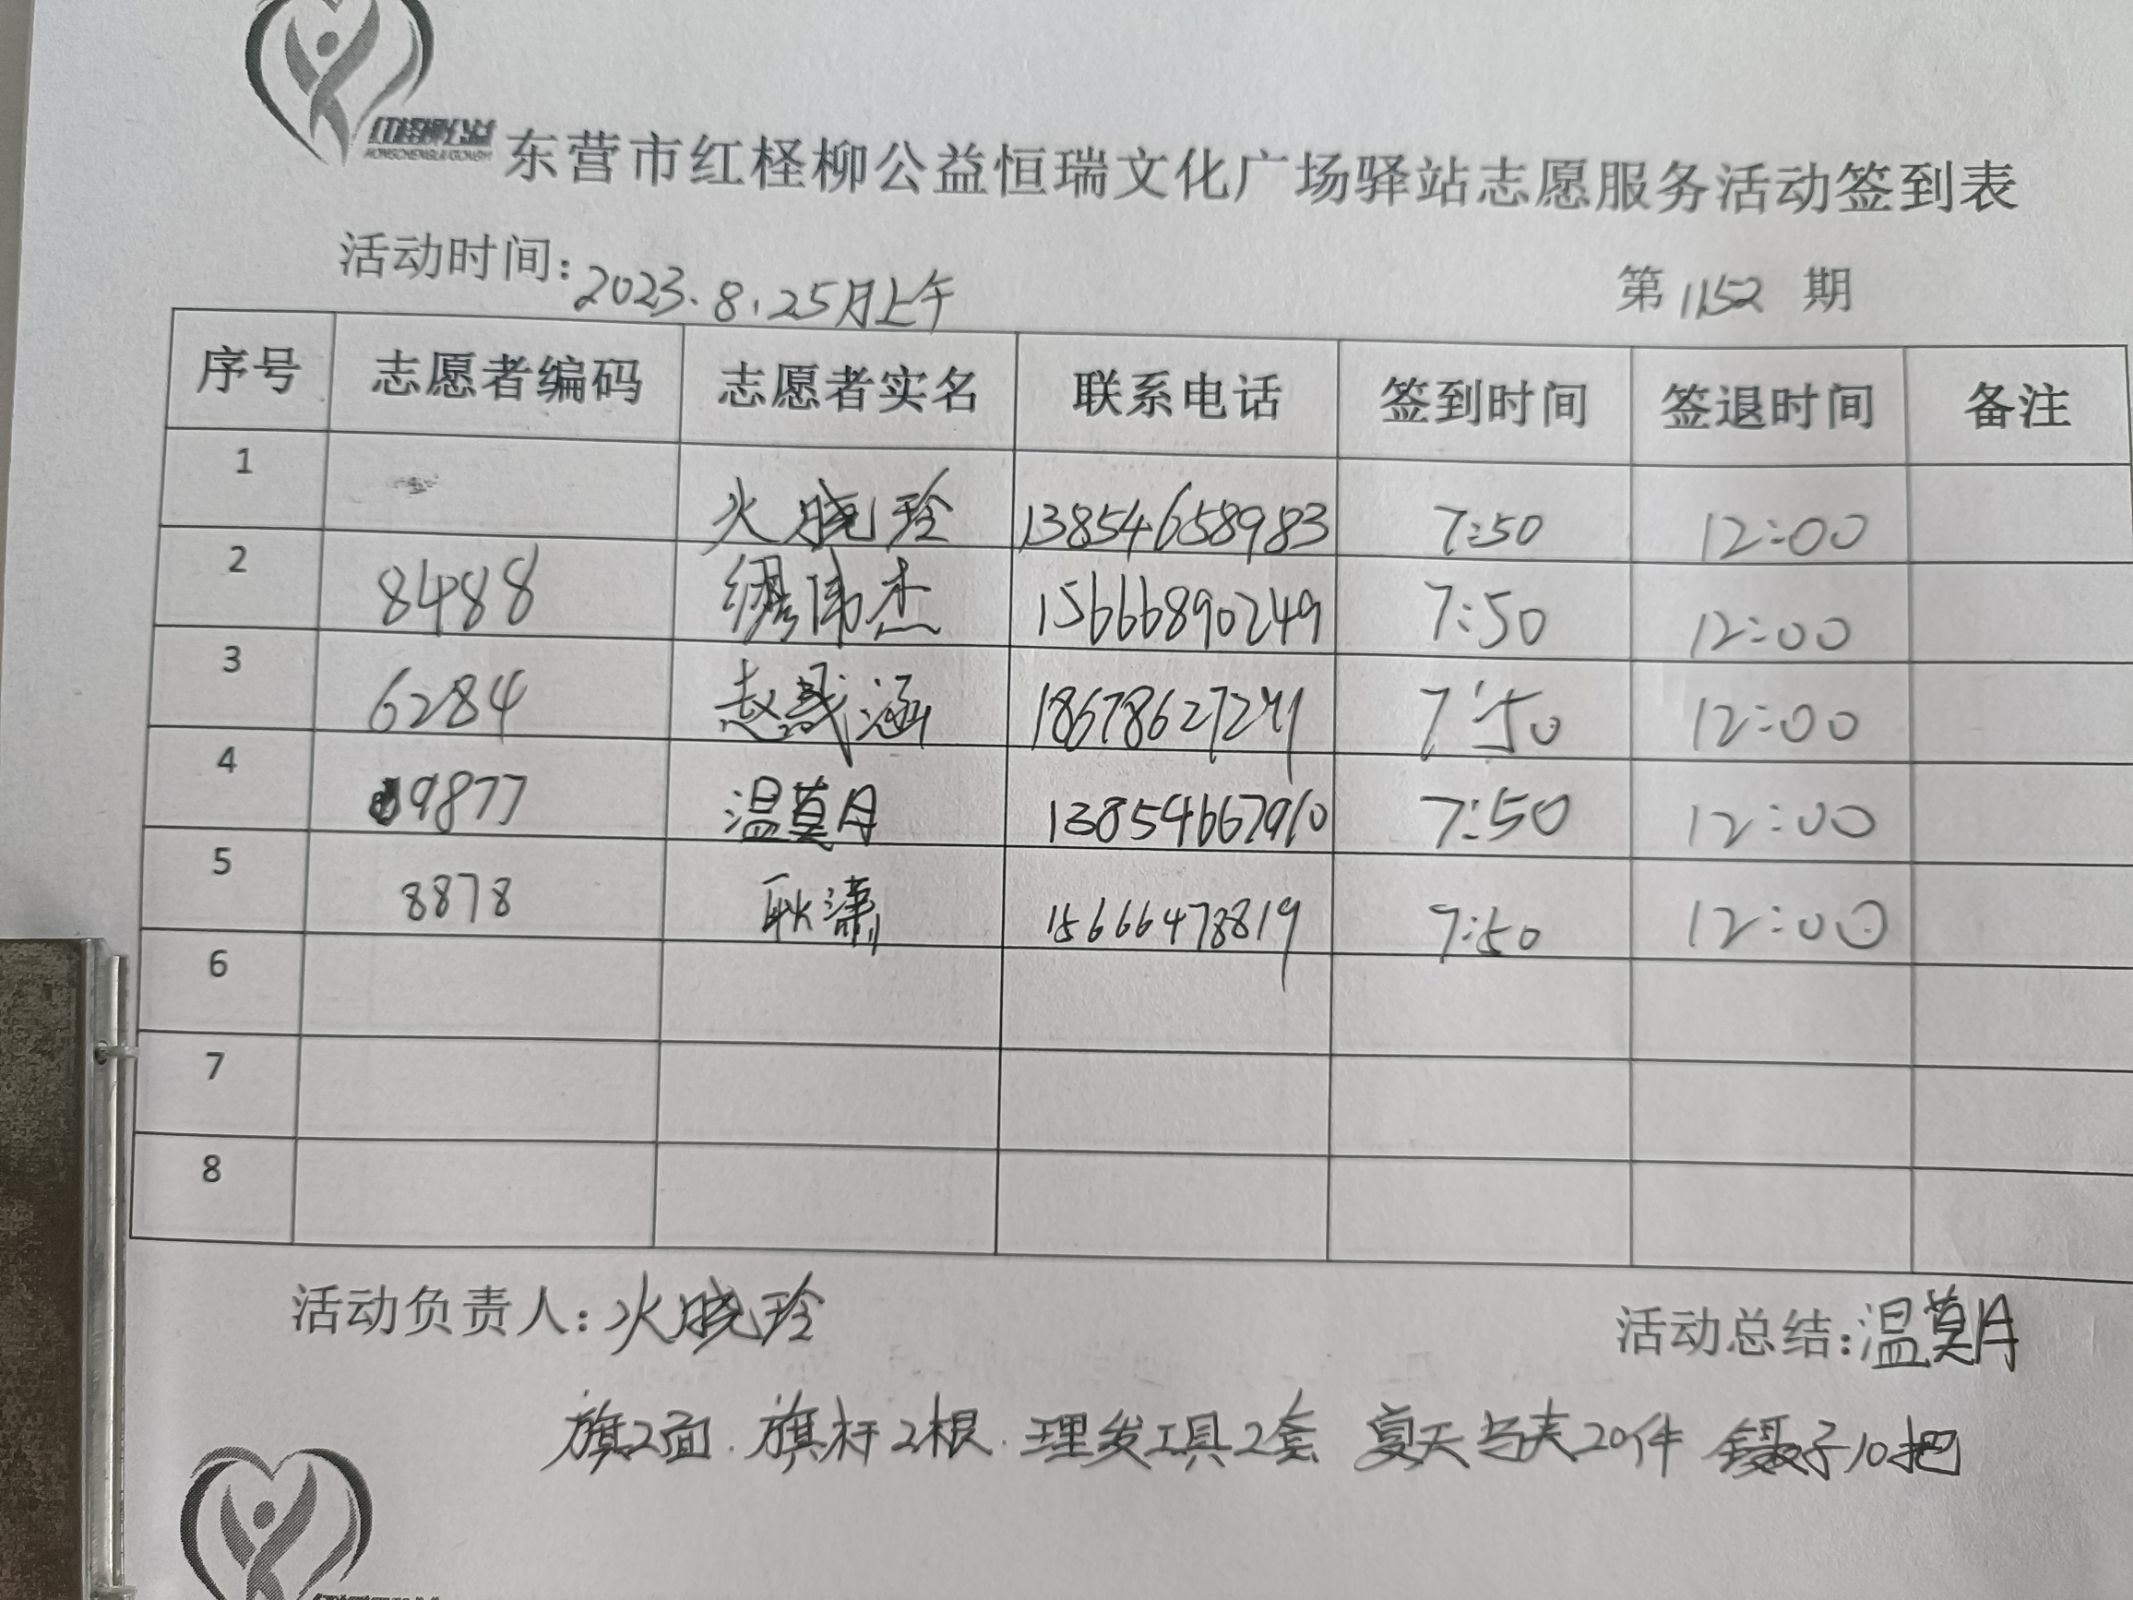 红柽柳公益
东营市红柽柳公益恒瑞文化广场驿站志愿服务活动签到表
活动时间：2023.8.25月上午 第1152期
序号 志愿者编码 志愿者实名 联系电话 签到时间 签退时间 备注
1 火晓玲 13854658983 7:50 12:00
2 8488 缪伟杰 15666890249 7:50 12:00
3 6284 赵晟涵 18678627241 7:50 12:00
4 9877 温莫月 13854667910 7:50 12:00
5 8878 耿潇 15666478819 7:50 12:00
6
7
8
活动负责人：火晓玲 活动总结：温莫月
旗2面.旗杆2根.理发工具2套 夏天马夹20件 镊子10把